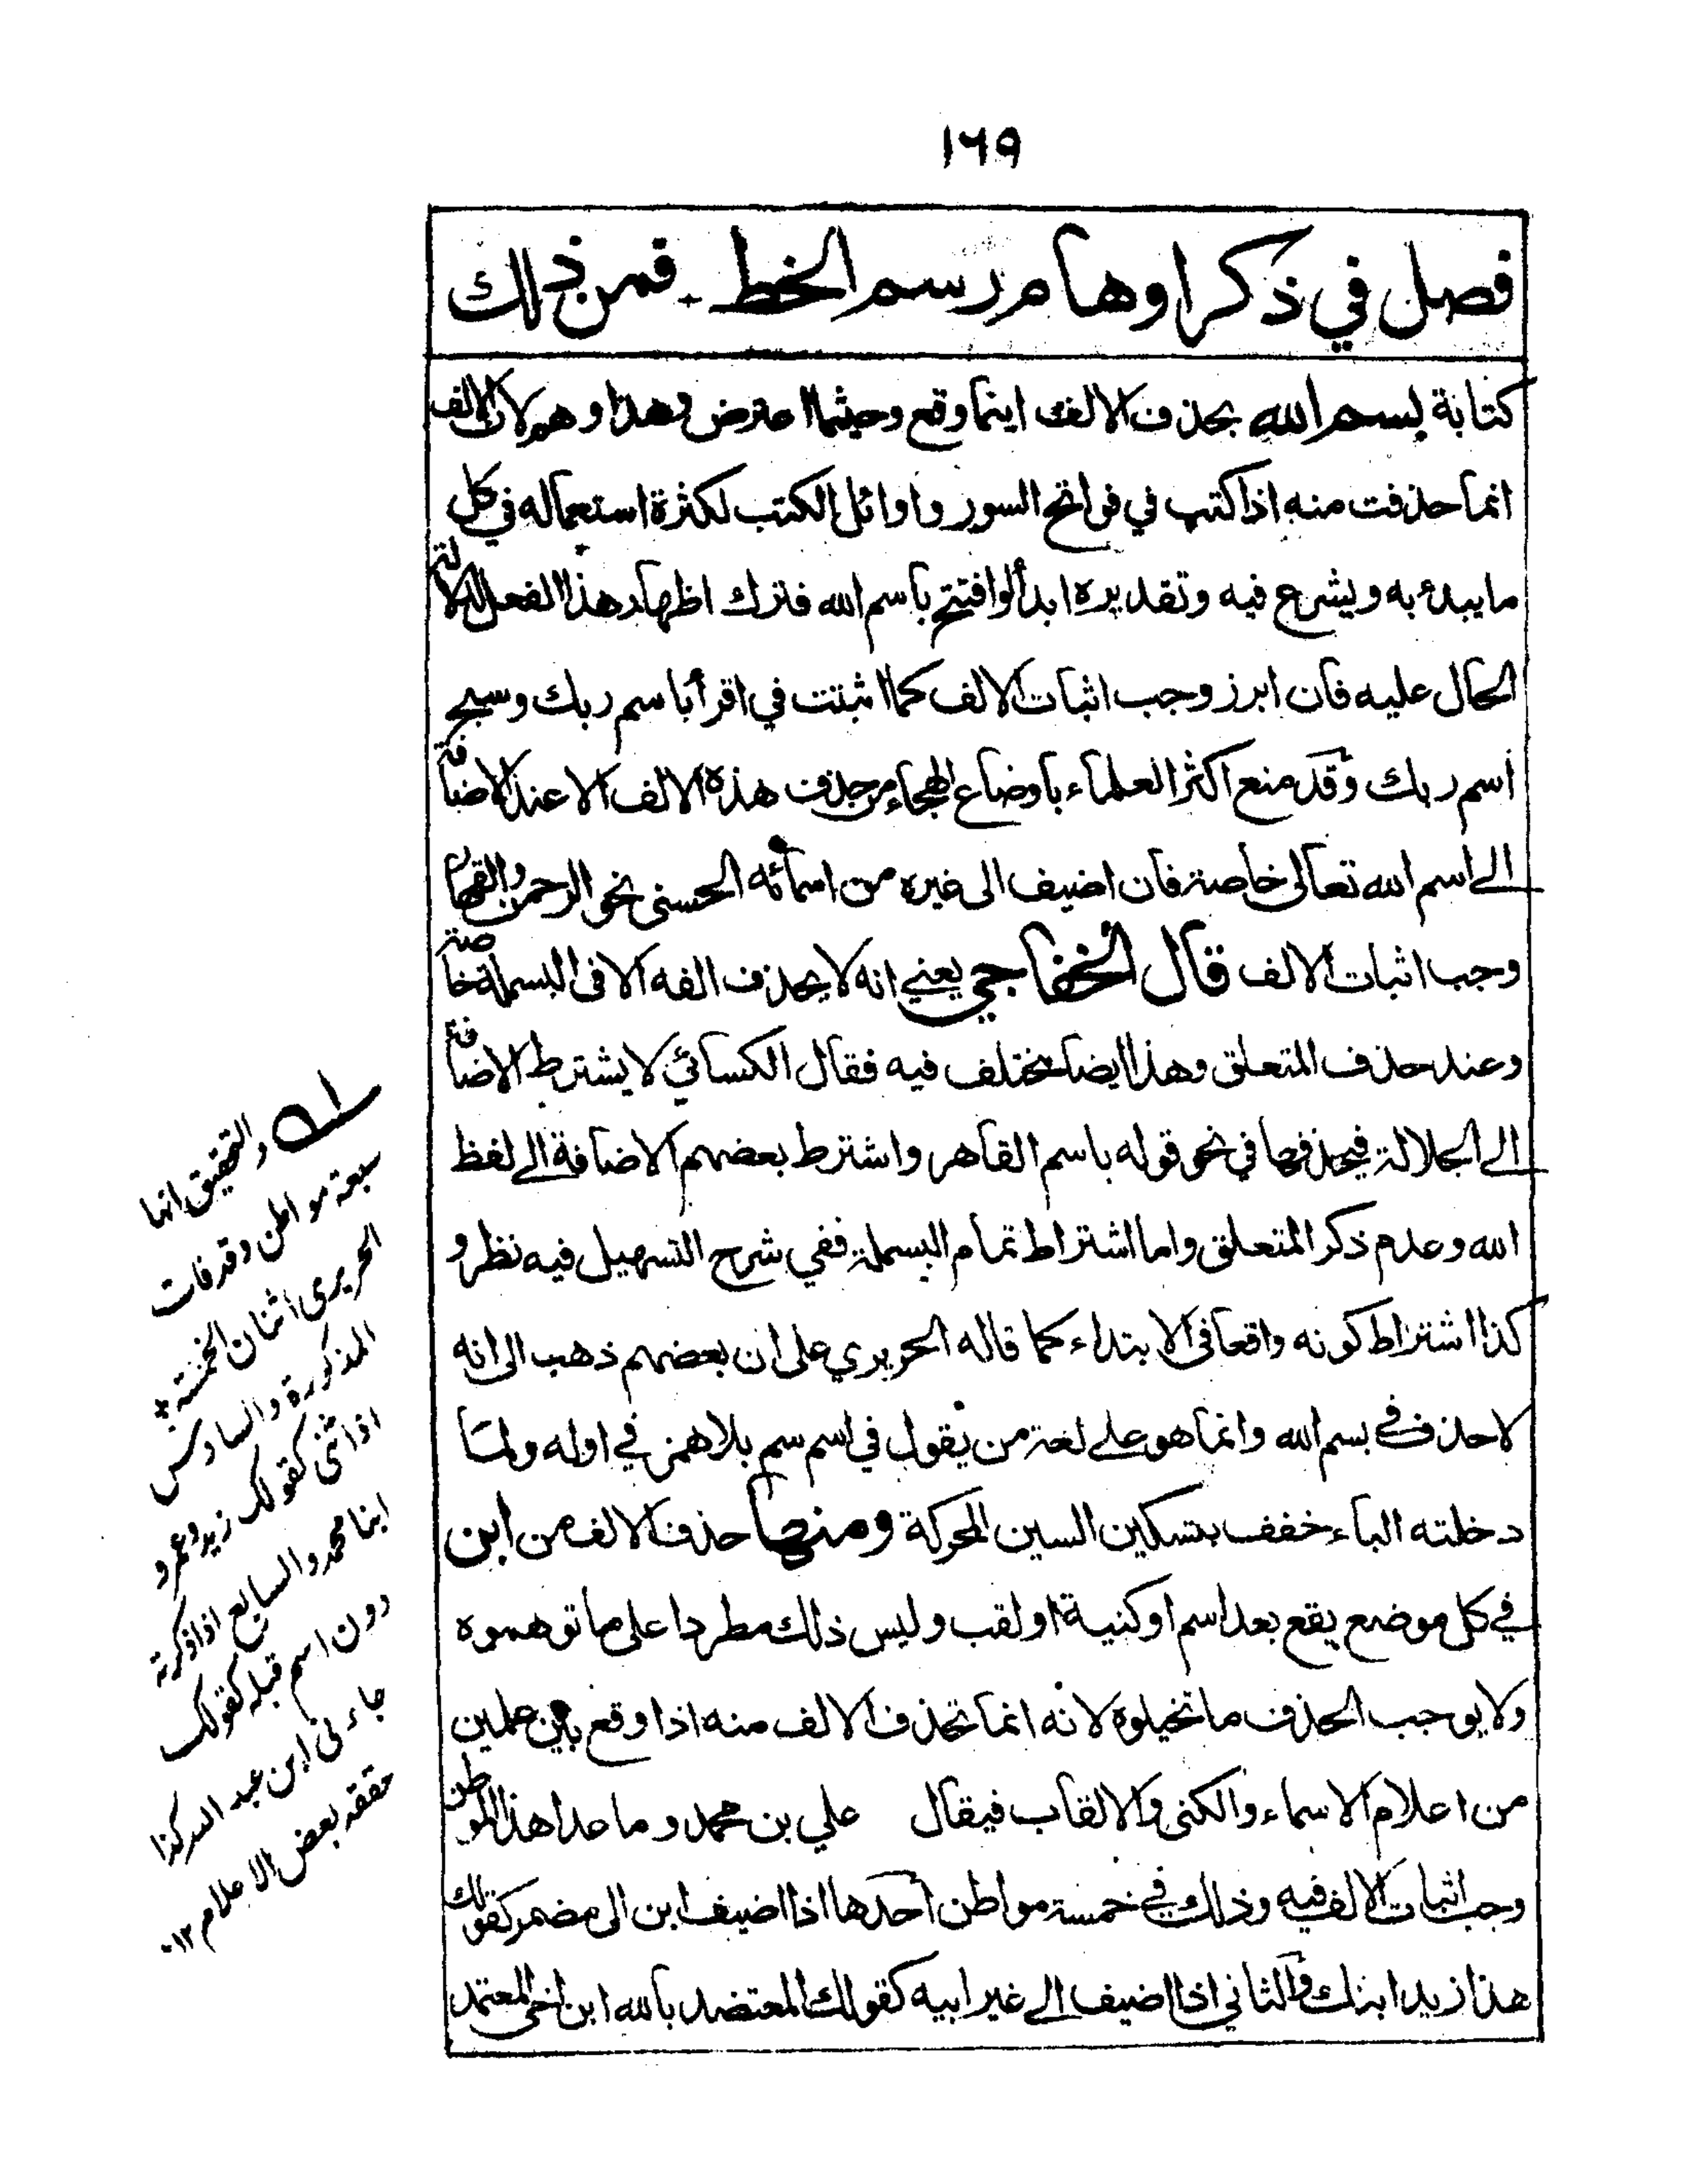 ١٦٩
فصل في ذكر اوهام رسم الخط - فمن ذلك
كتابة بسم الله بحذف الالف اينما وقع وحيثما اعترض وهذا وهم لان الالف
انما حذفت منه اذا كتب في فواتح السور واوائل الكتب لكثرة استعماله في كل
ما يبدء به ويشرع فيه وتقديره ابدأ او افتتح باسم الله فترك اظهار هذا الفعل لدلالة
الحال عليه فان ابرز وجب اثبات الالف كما اثبتت في اقرأ باسم ربك وسبح
اسم ربك وقد منع اكثر العلماء باوضاع الهجاء من حذف هذه الالف الا عند الاضافة
الى اسم الله تعالى خاصة فان اضيف الى غيره من اسمائه الحسنى نحو الرحمن والقهار
وجب اثبات الالف قال الخفاجي يعني انه لا يحذف الفه الا فى البسملة خاصة
وعند حذف المتعلق وهذا ايضا مختلف فيه فقال الكسائي لا يشترط الاضافة
الى الجلالة فيحذفها في نحو قوله باسم القاهر واشترط بعضهم الاضافة الى لفظ
الله وعدم ذكر المتعلق واما اشتراط تمام البسملة ففي شرح التسهيل فيه نظر و
كذا اشتراط كونه واقعا فى الابتداء كما قاله الحريري على ان بعضهم ذهب الى انه
لا حذف في بسم الله وانما هو على لغة من يقول في اسم سم بلا همز في اوله ولما
دخلته الباء خفف بتسكين السين المحركة ومنها حذف الالف من ابن
في كل موضع يقع بعد اسم او كنية او لقب وليس ذلك مطردا على ما توهموه
ولا يوجب الحذف ما تخيلوه لانه انما تحذف الالف منه اذا وقع بين علمين
من اعلام الاسماء والكنى والالقاب فيقال علي بن محمد وما عدا هذا المواطن
وجب اثبات الالف فيه وذلك في خمسة مواطن احدها اذا اضيف ابن الى مضمر كقولك
هذا زيد ابنك والثاني اذا اضيف الى غير ابيه كقولك المعتضد بالله ابن اخى المعتمد
والتحقيق انها
سبعة مواطن وقد فات
الحريرى اثنان الخمسة
المذكورة والسادس
اذا ثنى كقولك زيد وعمرو
ابنا محمد والسابع اذا ذكرته
دون اسم قبله كقولك
جاءنى ابن عبد الله كذا
حققه بعض الاعلام ١٢